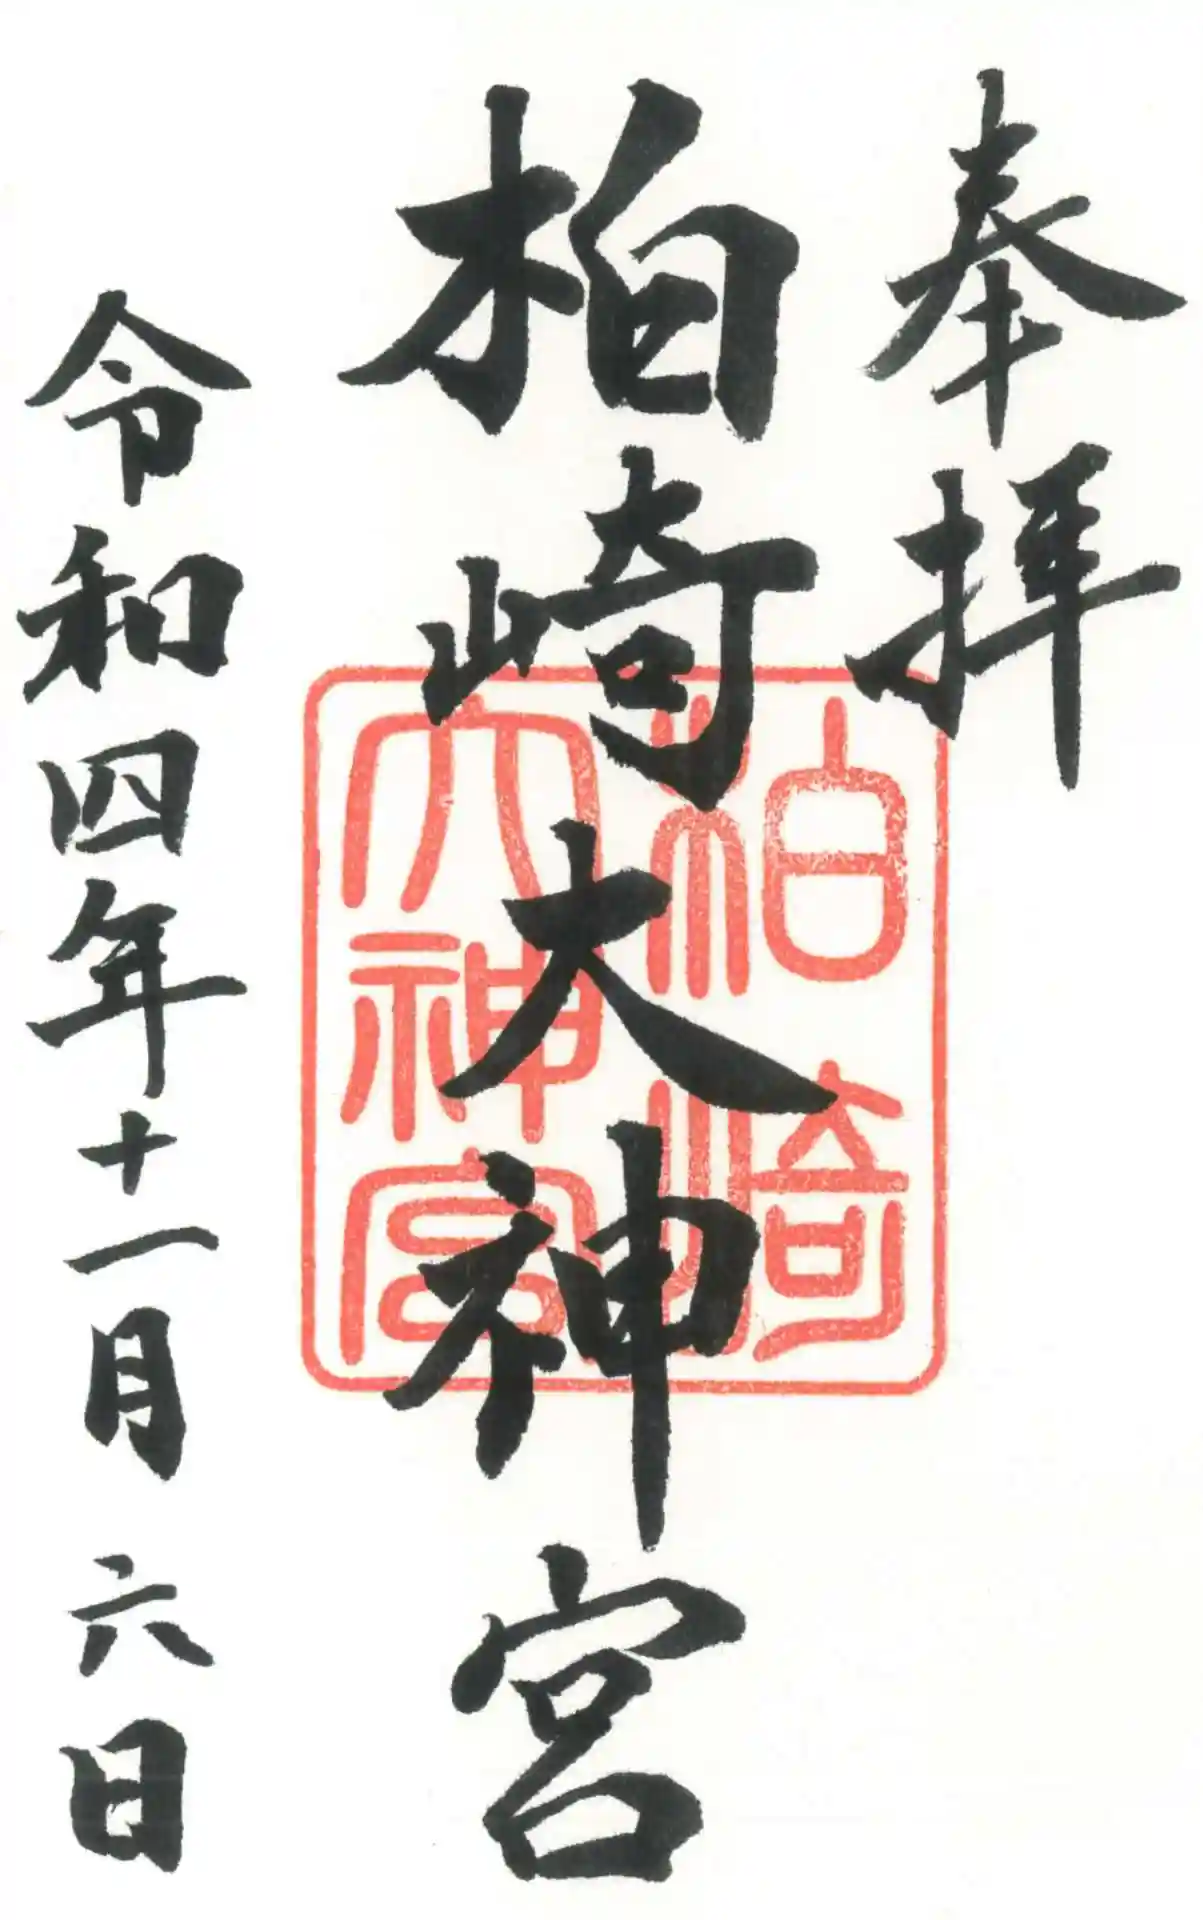 奉拝
柏崎大神宮
柏崎
大神宮
令和四年十一月六日